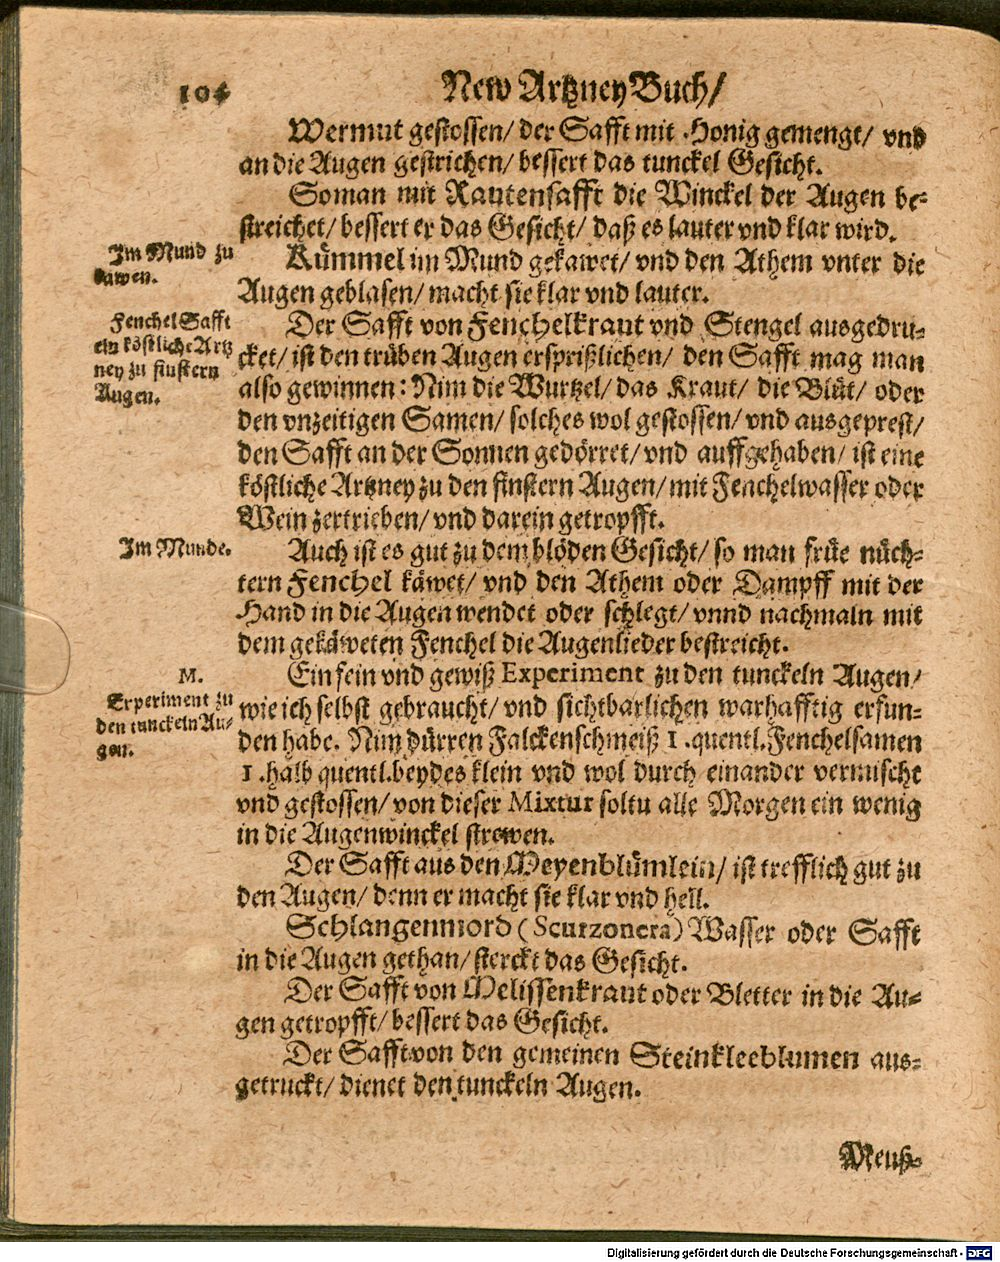 104
New Artzney Buch/
Wermut gestossen/ der Safft mit Honig gemengt/ vnd
an die Augen gestrichen/ bessert das tunckel Gesicht.
So man mit Rautensafft die Winckel der Augen be-
streichet/ bessert er das Gesicht/ daß es lauter vnd klar wird.
Im Mund zu
kawen.
Kümmel im Mund gekawet/ vnd den Athem vnter die
Augen geblasen/ macht sie klar vnd lauter.
Fenchel Safft
ein köstliche Artz
ney zu finstern
Augen.
Der Safft von Fenchelkraut vnd Stengel ausgedru-
cket/ ist den trüben Augen ersprißlichen/ den Safft mag man
also gewinnen: Nim die Wurtzel/ das Kraut/ die Blüt/ oder
den vnzeitigen Samen/ solches wol gestossen/ vnd ausgeprest/
den Safft an der Sonnen gedörret/ vnd auffgehaben/ ist eine
köstliche Artzney zu den finstern Augen/ mit Fenchelwasser oder
Wein zertrieben/ vnd darein getropfft.
Im Munde.
Auch ist es gut zu dem blöden Gesicht/ so man früe nüch-
tern Fenchel käwet/ vnd den Athem oder Dampff mit der
Hand in die Augen wendet oder schlegt/ vnnd nachmaln mit
dem gekäweten Fenchel die Augenlieder bestreicht.
M.
Experiment zu
den tunckeln Au-
gen.
Ein fein vnd gewiß Experiment zu den tunckeln Augen/
wie ich selbst gebraucht/ vnd sichtbarlichen warhafftig erfun-
den habe. Nim dürren Falckenschmeiß 1. quentl. Fenchelsamen
1. halb quentl. beydes klein vnd wol durch einander vermischt
vnd gestossen/ von dieser Mixtur soltu alle Morgen ein wenig
in die Augenwinckel strewen.
Der Safft aus den Meyenblümlein/ ist trefflich gut zu
den Augen/ denn er macht sie klar vnd hell.
Schlangenmord (Scurzonera) Wasser oder Safft
in die Augen gethan/ sterckt das Gesicht.
Der Safft von Melissenkraut oder Bletter in die Au-
gen getropfft/ bessert das Gesicht.
Der Safft von den gemeinen Steinkleeblumen aus-
getruckt/ dienet den tunckeln Augen.
Meuß-
Digitalisierung gefördert durch die Deutsche Forschungsgemeinschaft - DFG